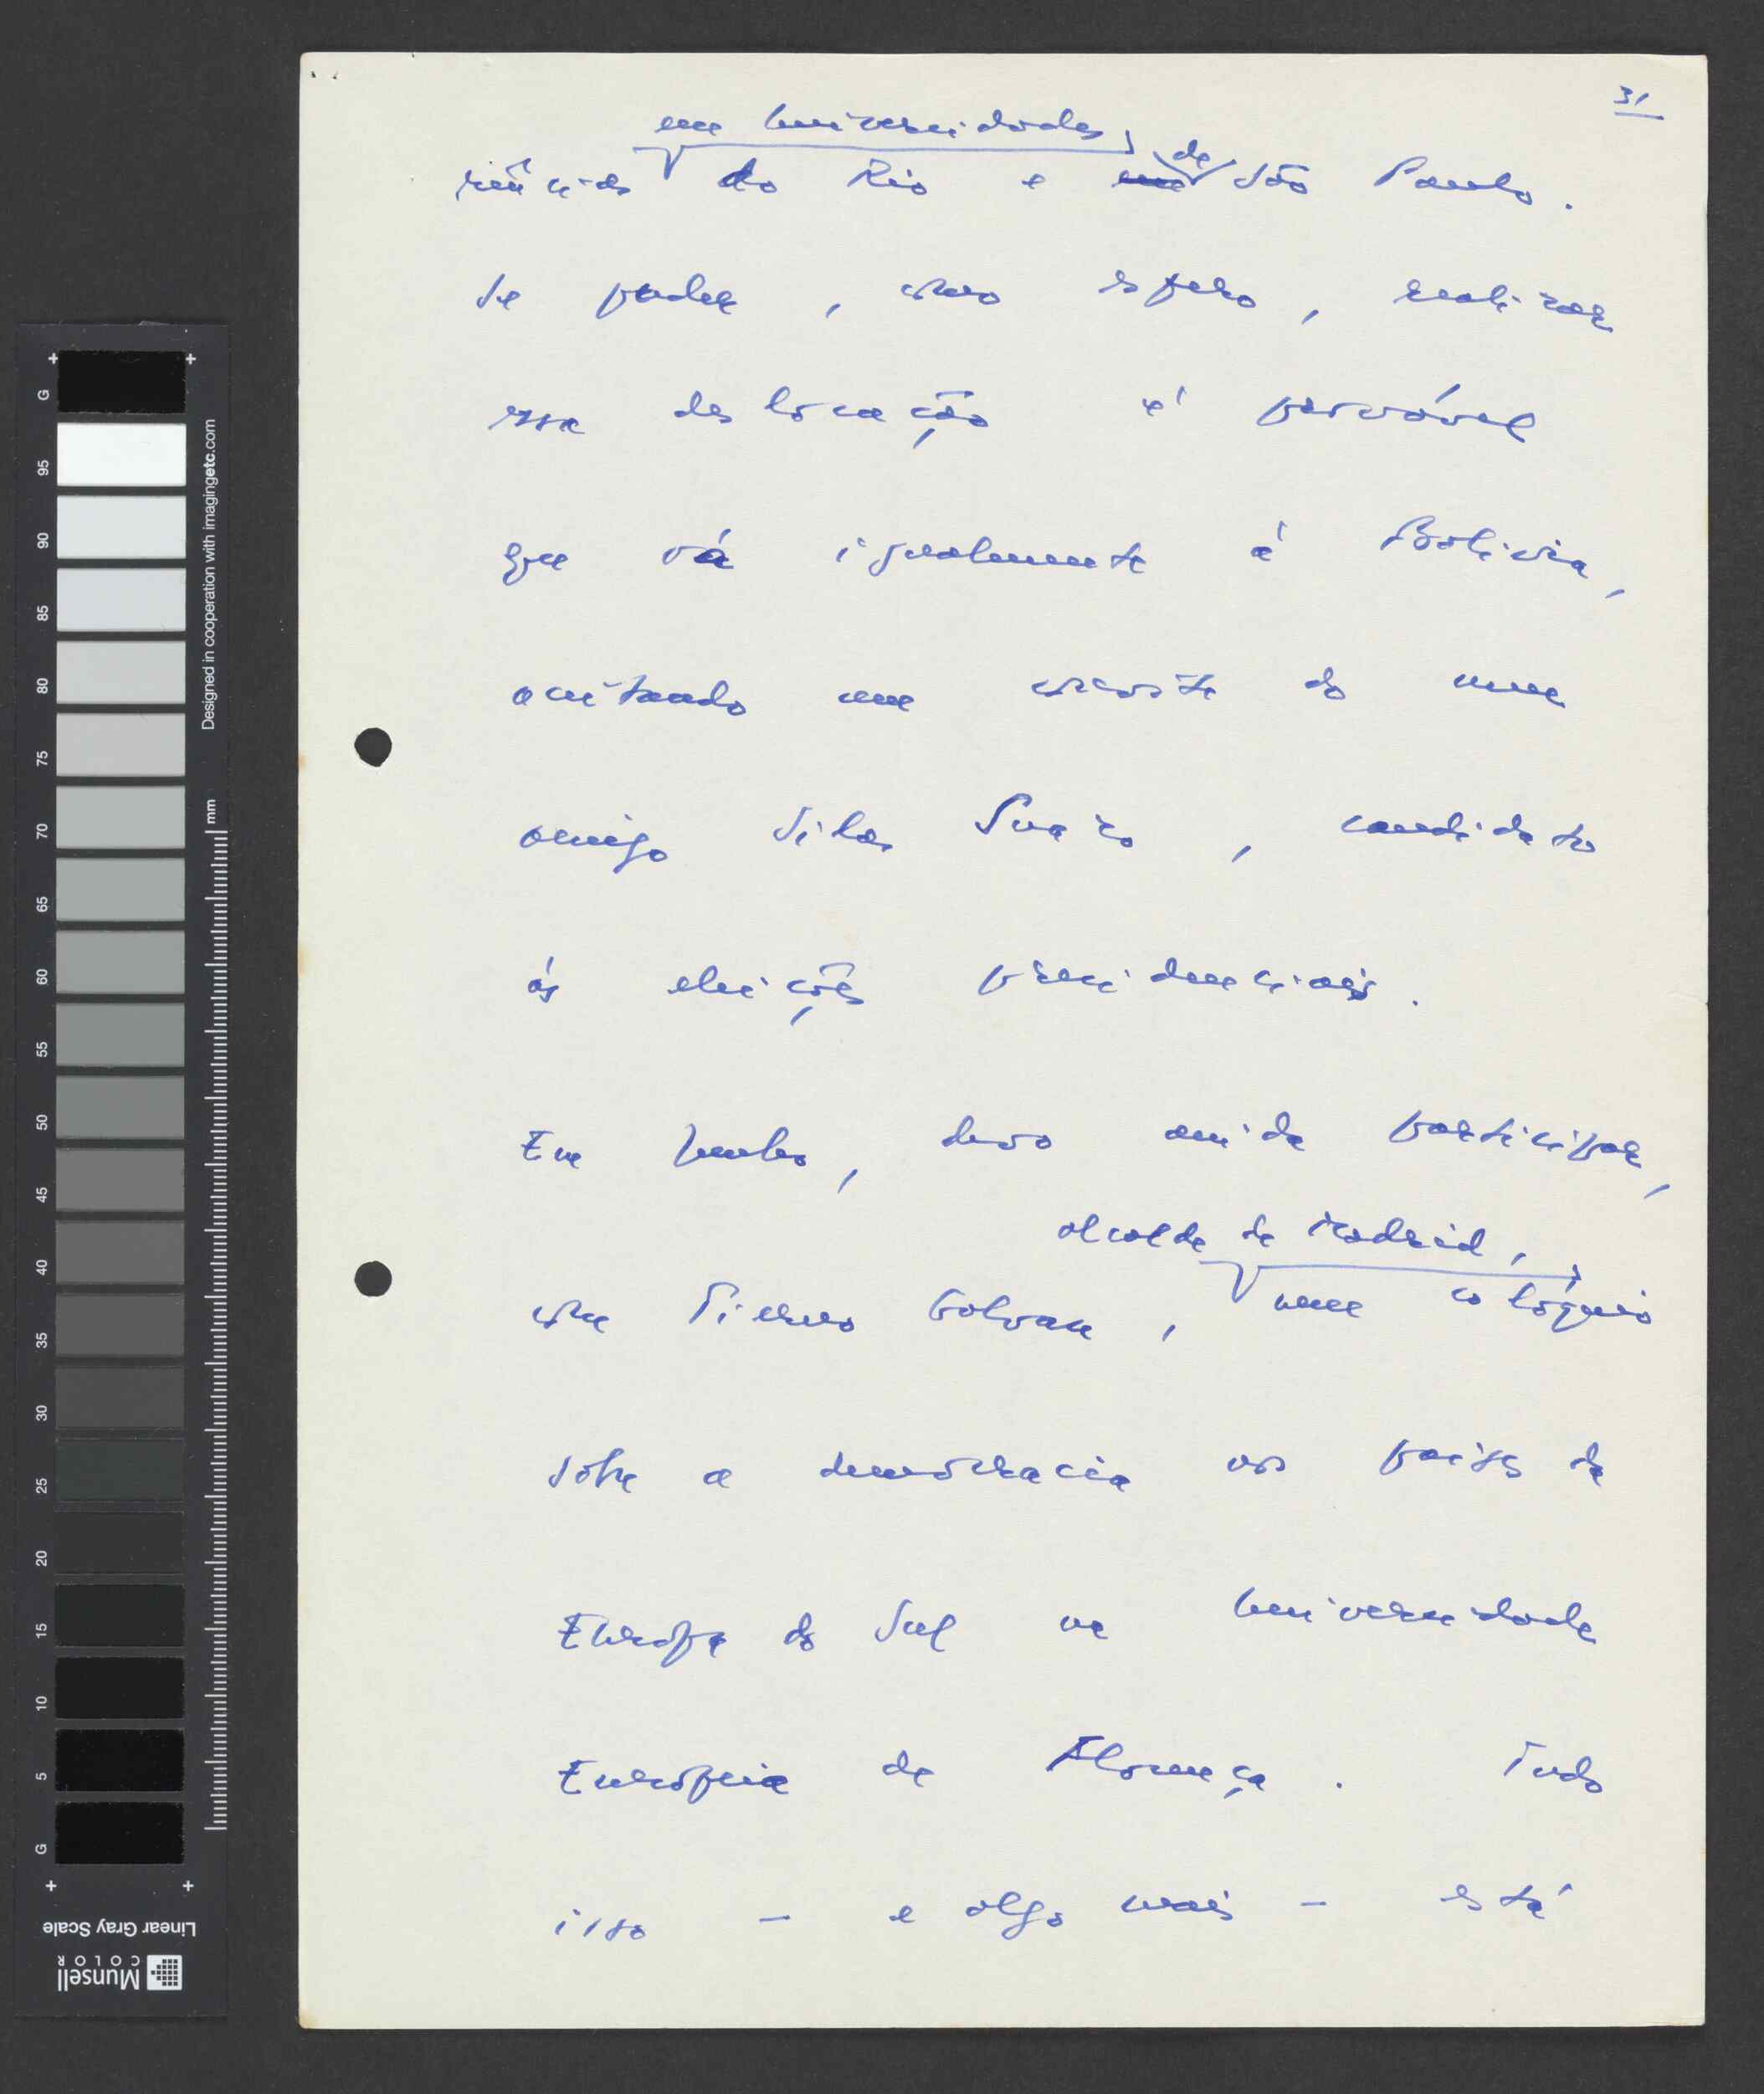 31
em Universidades
rências do Rio e de São Paulo.
Se puder, como espero, realizar
essa deslocação é provável
que vá igualmente à Bolívia,
aceitando um convite do meu
amigo Siles Suazo, candidato
às eleições presidenciais.
Em Junho, devo ainda participar,
alcalde de Madrid,
com Tierno Galvan, num colóquio
sobre a democracia nos países da
Europa do Sul na Universidade
Europeia de Florença. Tudo
isso – e algo mais – está
G
95
90
85
80
75
70
65
60
55
50
45
40
35
30
25
20
15
10
5
G
Designed in cooperation with imagingetc.com
mm
Linear Gray Scale
Munsell
COLOR